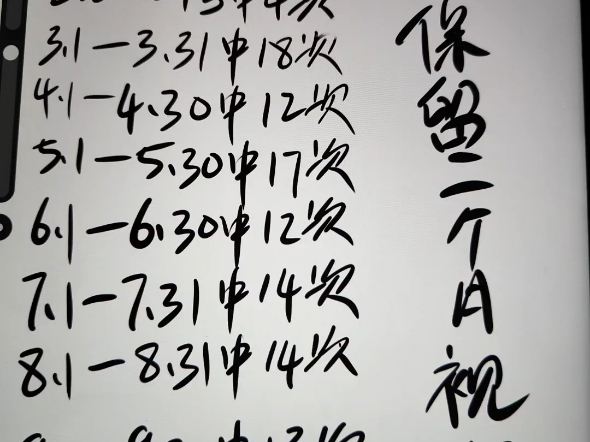 3.1—3.31中18次
4.1—4.30中12次
5.1—5.30中17次
6.1—6.30中12次
7.1—7.31中14次
8.1—8.31中14次
保留二个月视